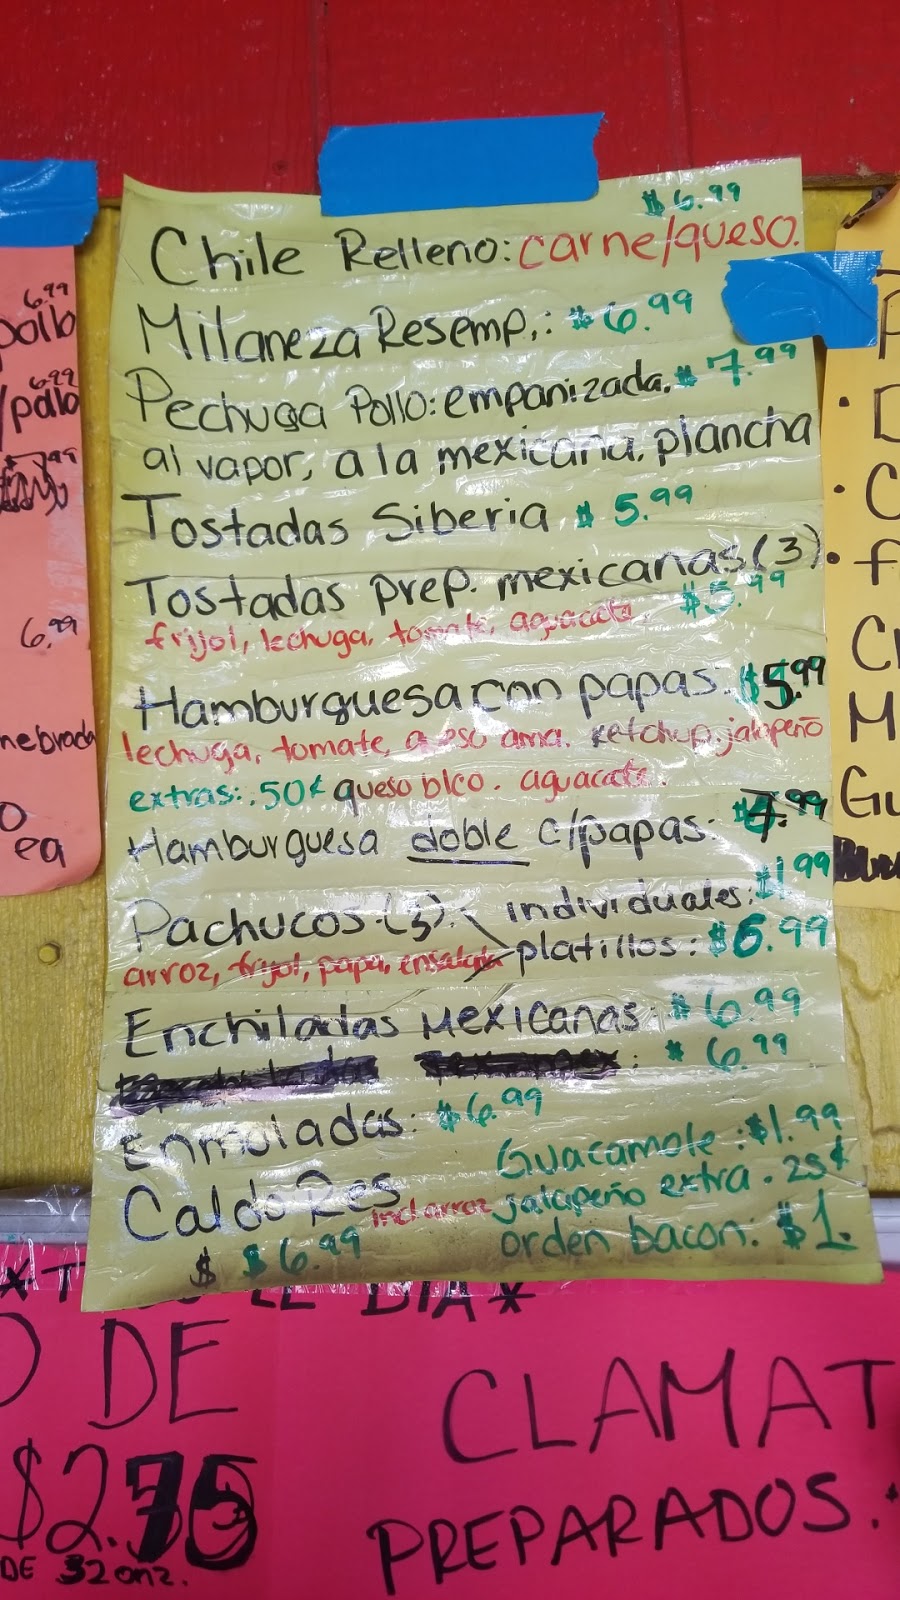 $6.99
Chile Relleno: carne/queso.
Milaneza Res emp.: $6.99
Pechuga Pollo: empanizada. $7.99
al vapor, a la mexicana. plancha
Tostadas Siberia $5.99
Tostadas prep. mexicanas (3)
frijol, lechuga, tomate, aguacate. $5.99
Hamburguesa con papas: $5.99
lechuga, tomate, queso ama. ketchup, jalapeño
extras: .50¢ queso blco. aguacate.
Hamburguesa doble c/papas: $7.99
Pachucos (3) individuales: $1.99
arroz, frijol, papa, ensalada platillos: $6.99
Enchiladas Mexicanas: $6.99
: $6.99
Enmoladas: $6.99
Guacamole: $1.99
Caldo Res incl arroz jalapeño extra. 25¢
$ $6.99 orden bacon: $1.
6.99
pollo
6.99
/pollo
6.99
nebrada
ea
EL DIA*
DE
$2.75
DE 32 onz.
CLAMAT
PREPARADOS.